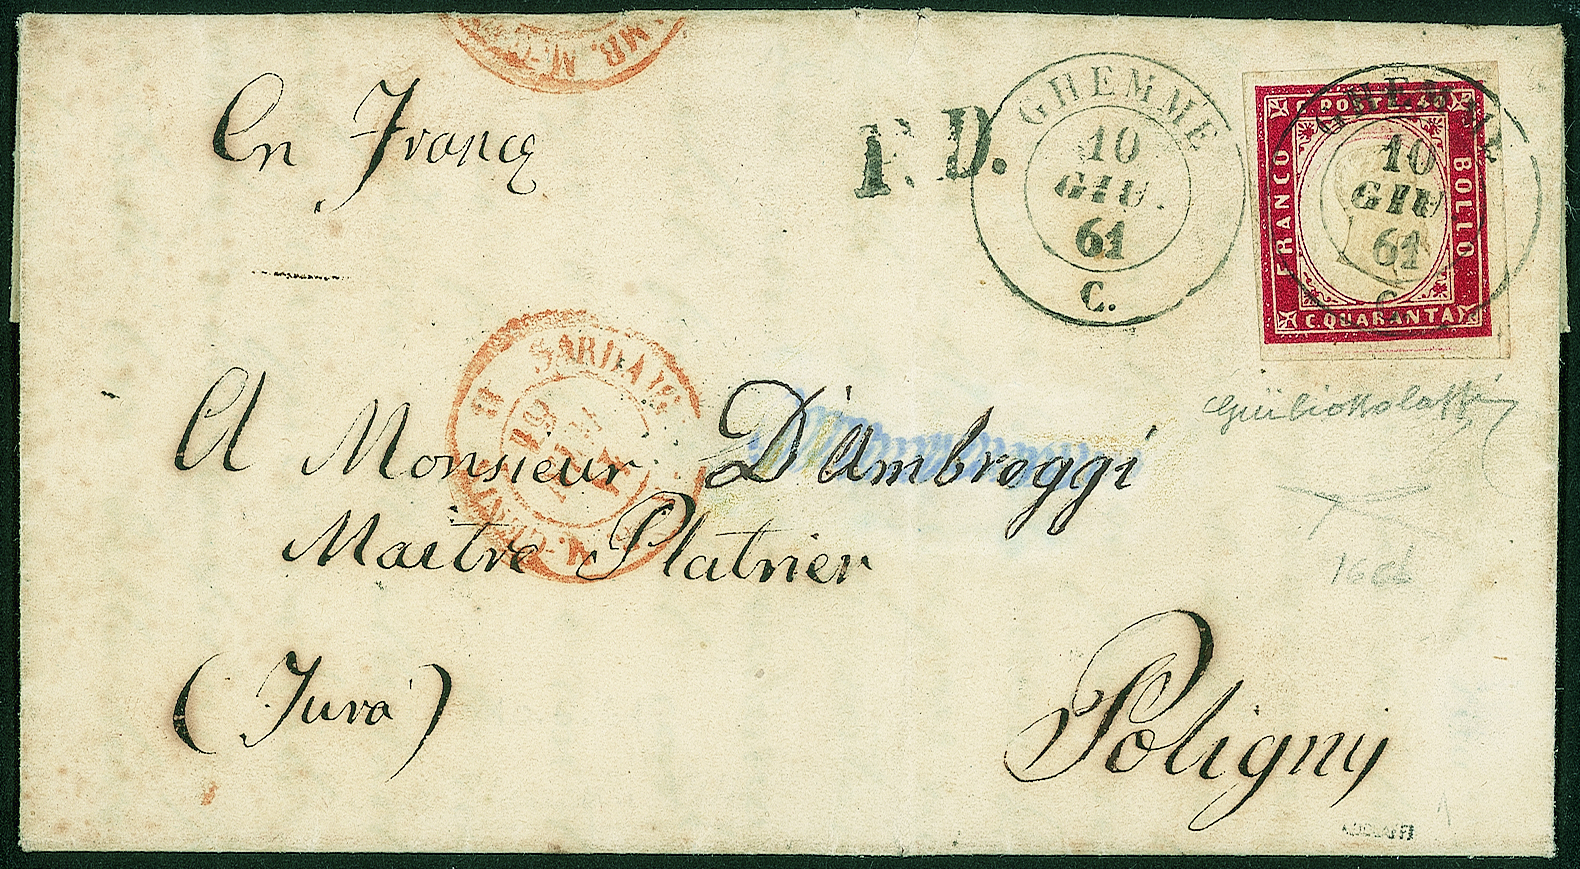 MB. M-
En France
P. D.
GHEMME
10
GIU.
61
C.
C. POSTE. 40
FRANCO
BOLLO
C. QUARANTA
GHEMME
10
GIU.
61
C.
SARDAIG
A Monsieur D'Ambroggi
Maitre Platrier
(Jura)
Poligny
16 cl